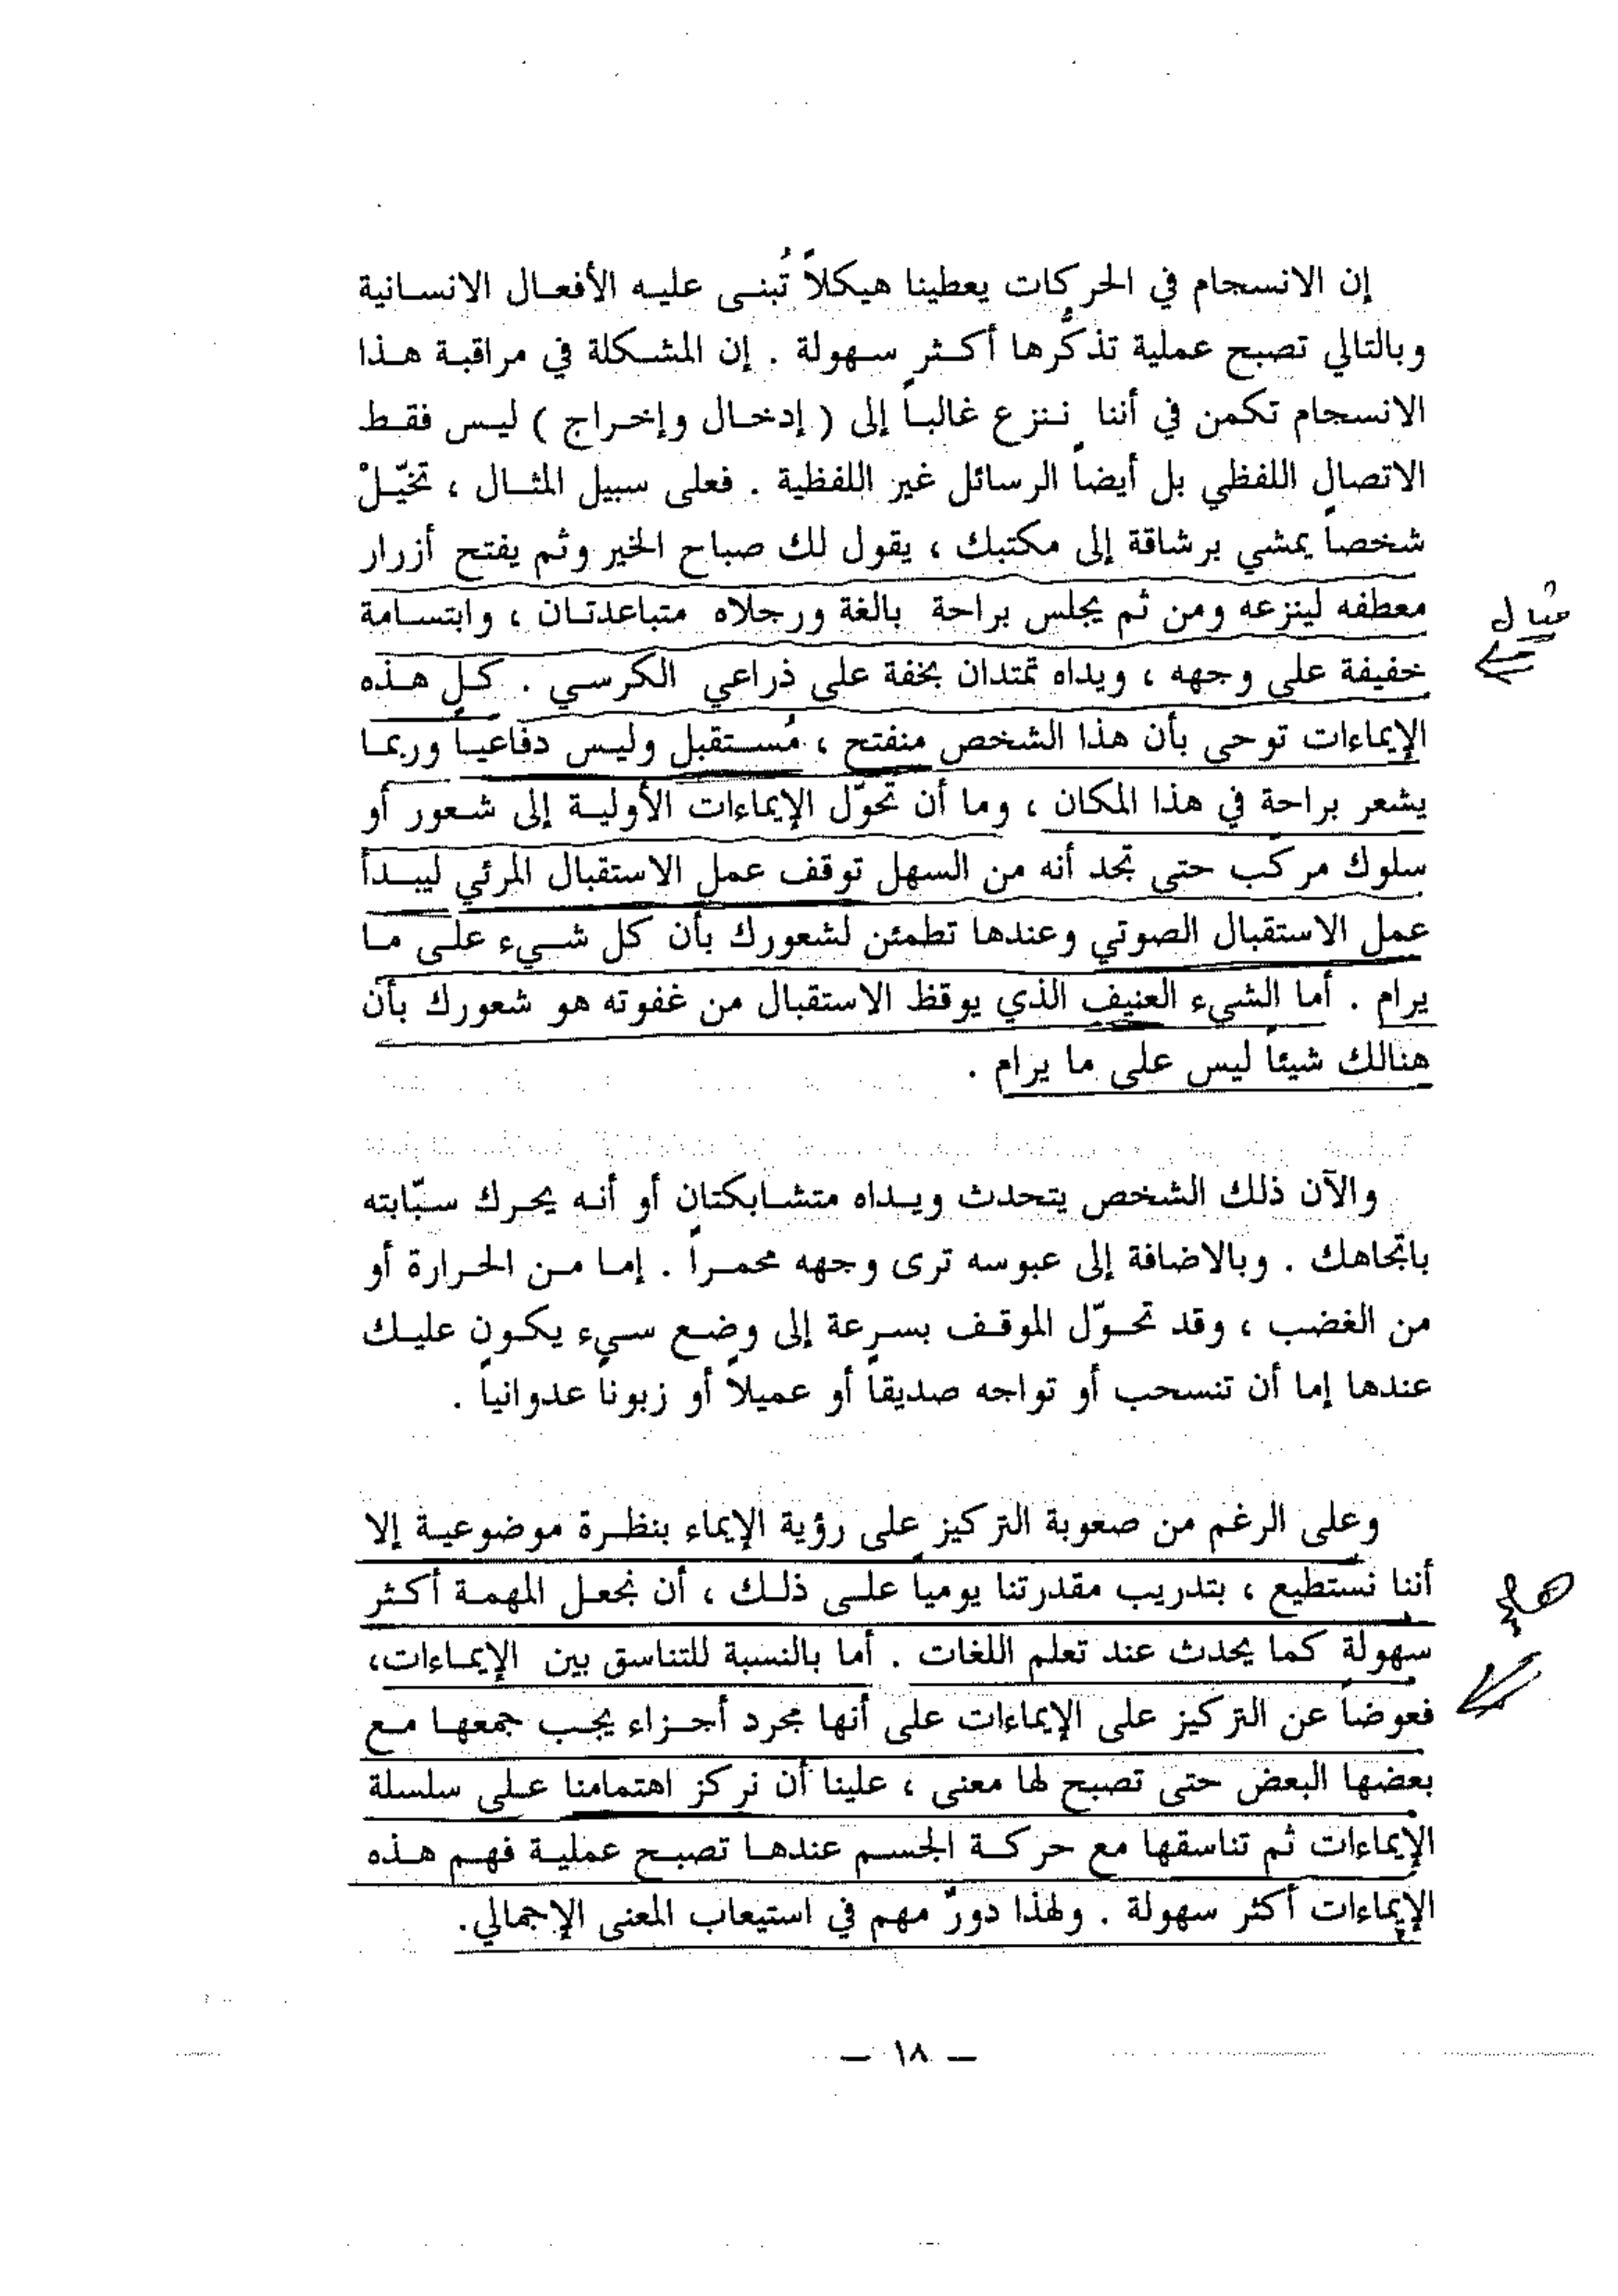 إن الانسجام في الحركات يعطينا هيكلاً تُبنى عليه الأفعال الانسانية
وبالتالي تصبح عملية تذكّرها أكثر سهولة . إن المشكلة في مراقبة هذا
الانسجام تكمن في أننا ننزع غالباً إلى ( إدخال وإخراج ) ليس فقط
الاتصال اللفظي بل أيضاً الرسائل غير اللفظية . فعلى سبيل المثال ، تخيّلْ
شخصاً يمشي برشاقة إلى مكتبك ، يقول لك صباح الخير وثم يفتح أزرار
معطفه لينزعه ومن ثم يجلس براحة بالغة ورجلاه متباعدتان ، وابتسامة
مثال
خفيفة على وجهه ، ويداه تمتدان بخفة على ذراعي الكرسي . كل هذه
الإيماءات توحي بأن هذا الشخص منفتح ، مُستقبل وليس دفاعياً وربما
يشعر براحة في هذا المكان ، وما أن تحوّل الإيماءات الأولية إلى شعور أو
سلوك مركّب حتى تجد أنه من السهل توقف عمل الاستقبال المرئي ليبدأ
عمل الاستقبال الصوتي وعندها تطمئن لشعورك بأن كل شيء على ما
يرام . أما الشيء العنيف الذي يوقظ الاستقبال من غفوته هو شعورك بأن
هنالك شيئاً ليس على ما يرام .
والآن ذلك الشخص يتحدث ويداه متشابكتان أو أنه يحرك سبّابته
باتجاهك . وبالاضافة إلى عبوسه ترى وجهه محمراً . إما من الحرارة أو
من الغضب ، وقد تحوّل الموقف بسرعة إلى وضع سيء يكون عليك
عندها إما أن تنسحب أو تواجه صديقاً أو عميلاً أو زبوناً عدوانياً .
وعلى الرغم من صعوبة التركيز على رؤية الإيماء بنظرة موضوعية إلا
أننا نستطيع ، بتدريب مقدرتنا يومياً على ذلك ، أن نجعل المهمة أكثر
سهولة كما يحدث عند تعلم اللغات . أما بالنسبة للتناسق بين الإيماءات،
فعوضاً عن التركيز على الإيماءات على أنها مجرد أجزاء يجب جمعها مع
بعضها البعض حتى تصبح لها معنى ، علينا أن نركز اهتمامنا على سلسلة
الإيماءات ثم تناسقها مع حركة الجسم عندها تصبح عملية فهم هذه
الإيماءات أكثر سهولة . ولهذا دورٌ مهم في استيعاب المعنى الإجمالي.
— ١٨ —